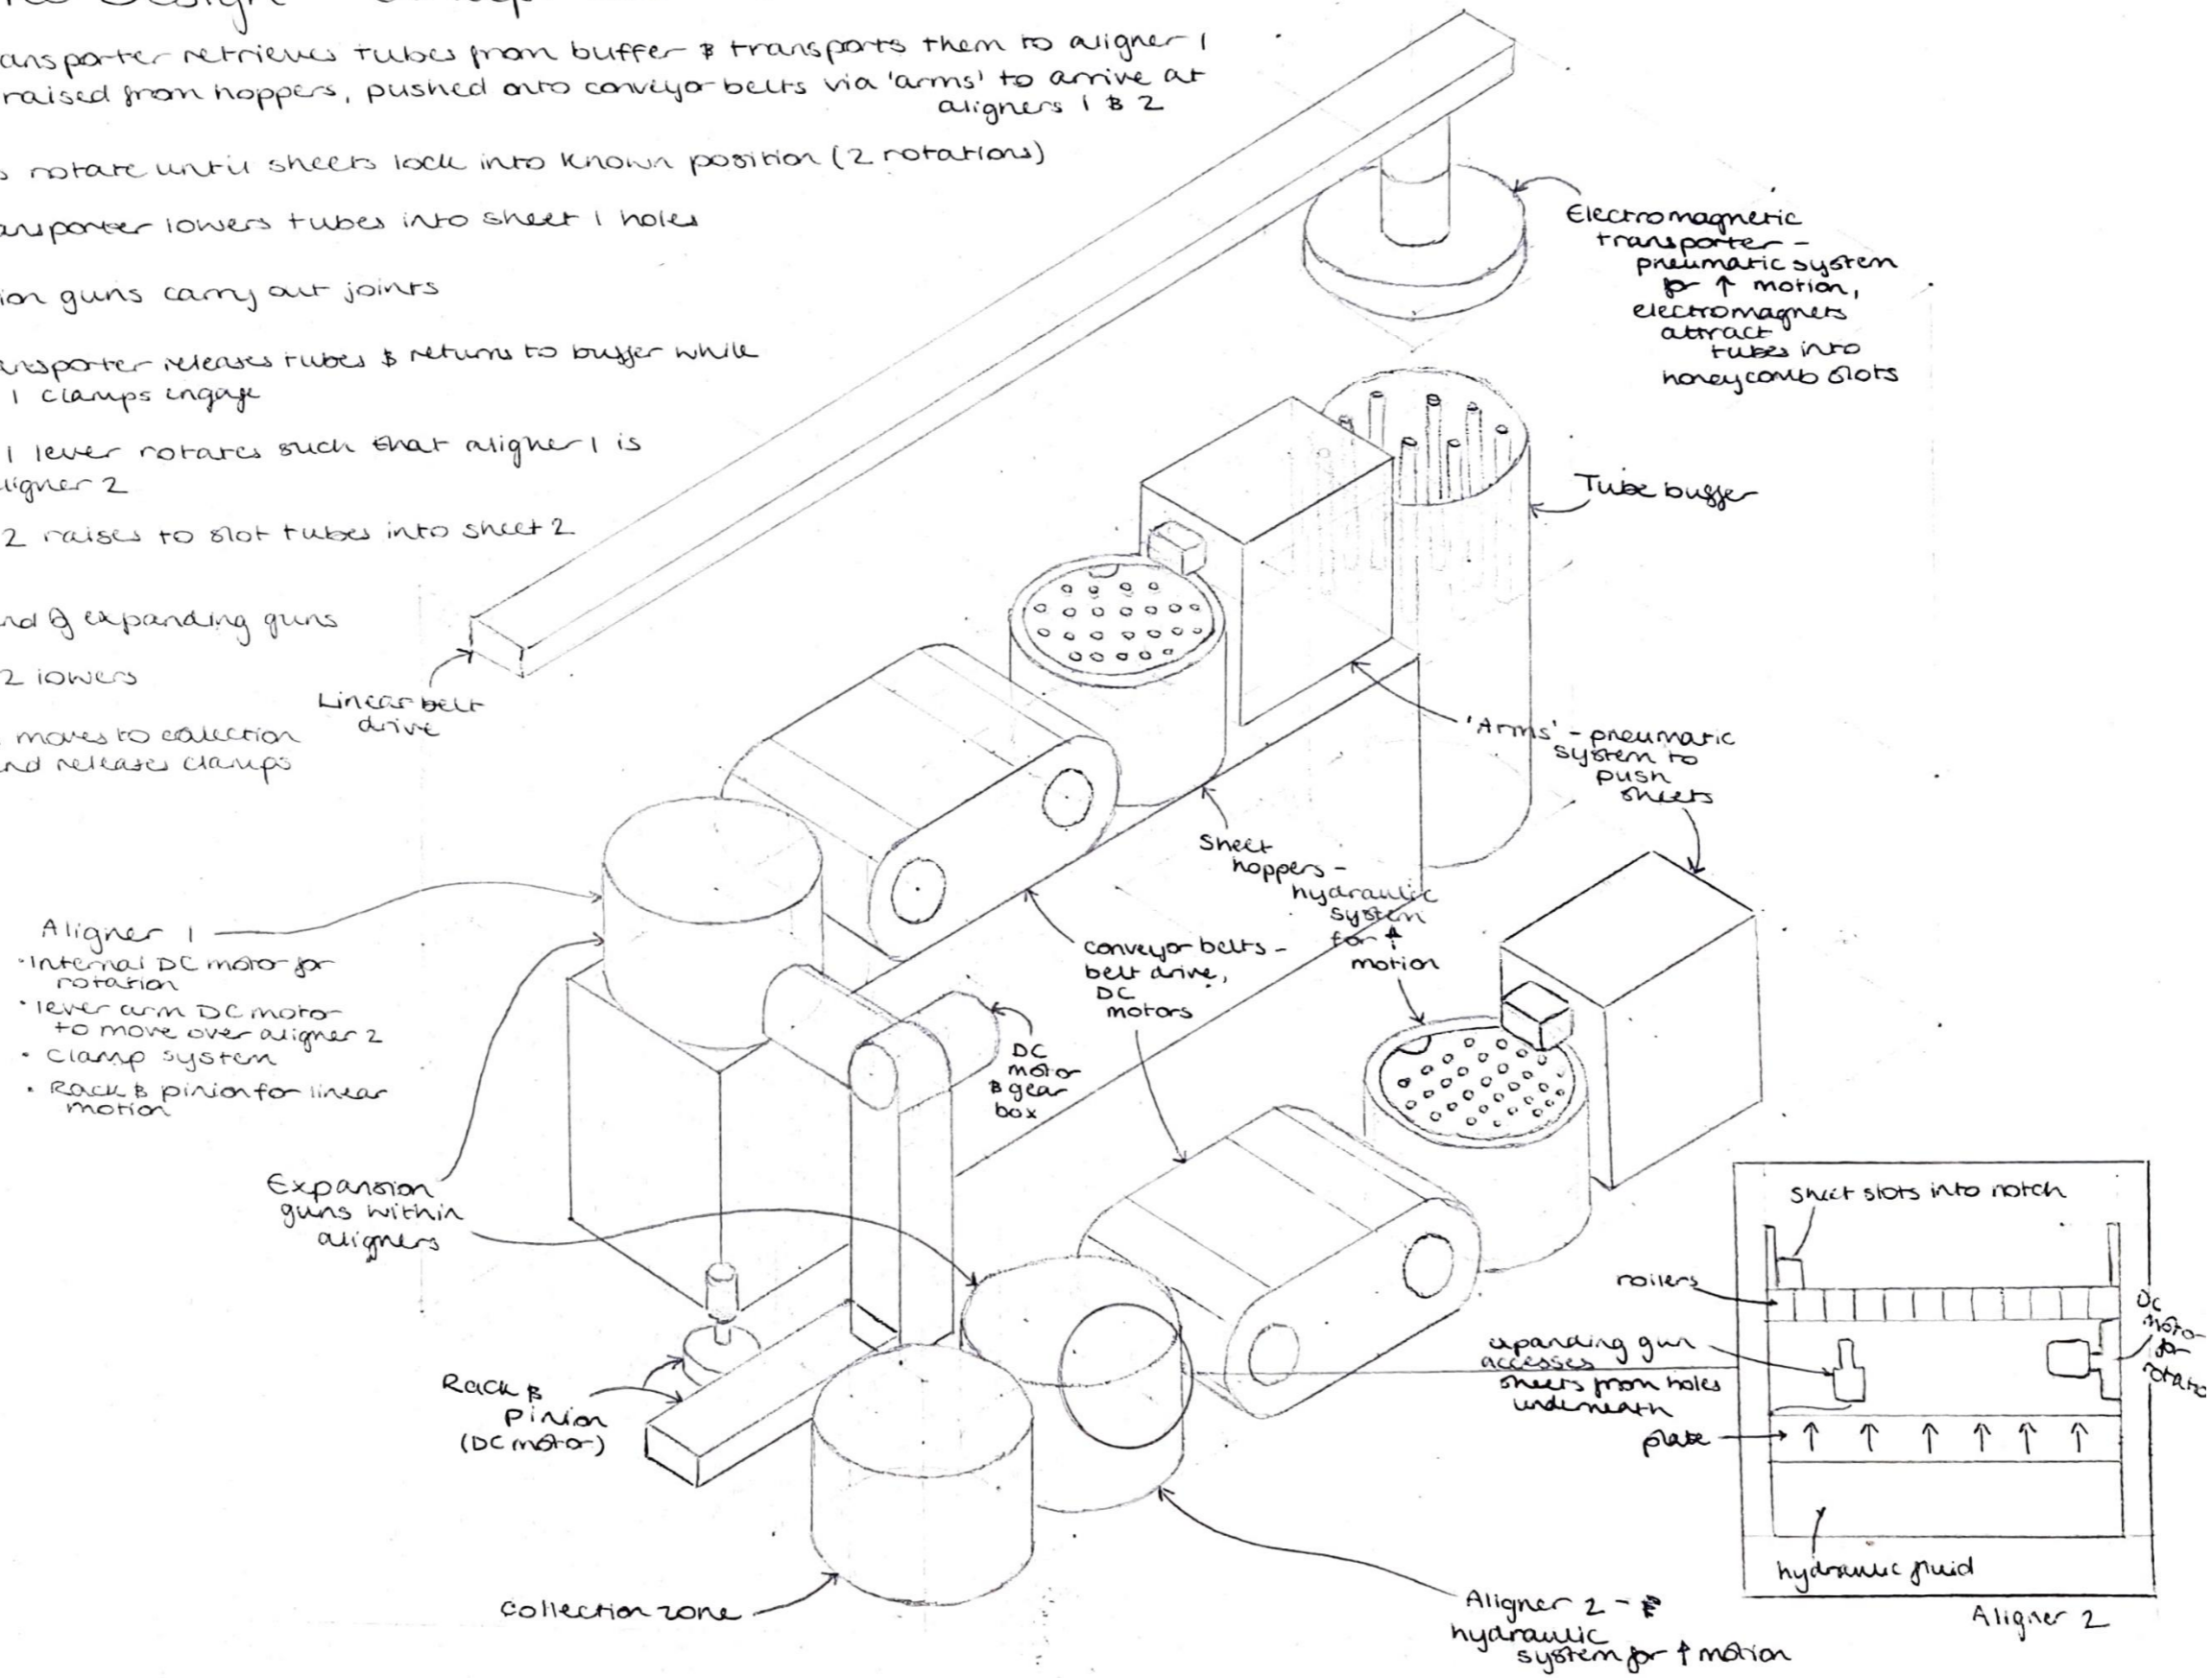 Design
ansporter retrieves tubes from buffer & transports them to aligner 1
raised from hoppers, pushed onto conveyor belts via 'arms' to arrive at
aligners 1 & 2
s rotate until sheets lock into known position (2 rotations)
ansporter lowers tubes into sheet 1 holes
ion guns carry out joints
ansporter releases tubes & returns to buffer while
1 clamps engage
1 lever rotates such that aligner 1 is
ligner 2
2 raises to slot tubes into sheet 2
nd of expanding guns
2 lowers
moves to collection
nd releases clamps
Linear belt
drive
Electromagnetic
transporter -
pneumatic system
for ↑ motion,
electromagnets
attract
tubes into
honeycomb slots
Tube buffer
'Arms' - pneumatic
system to
push
sheets
Sheet
hoppers -
hydraulic
system
for ↑
motion
conveyor belts -
belt drive,
DC
motors
Aligner 1
· Internal DC motor for
rotation
· lever arm DC motor
to move over aligner 2
· Clamp system
· Rack & pinion for linear
motion
DC
motor
& gear
box
Expansion
guns within
aligners
Rack &
pinion
(DC motor)
Collection zone
Aligner 2 -
hydraulic
system for ↑ motion
sheet slots into notch
rollers
DC
motor
for
rotatio
expanding gun
accesses
sheets from holes
underneath
plate
↑ ↑ ↑ ↑ ↑ ↑
hydraulic fluid
Aligner 2